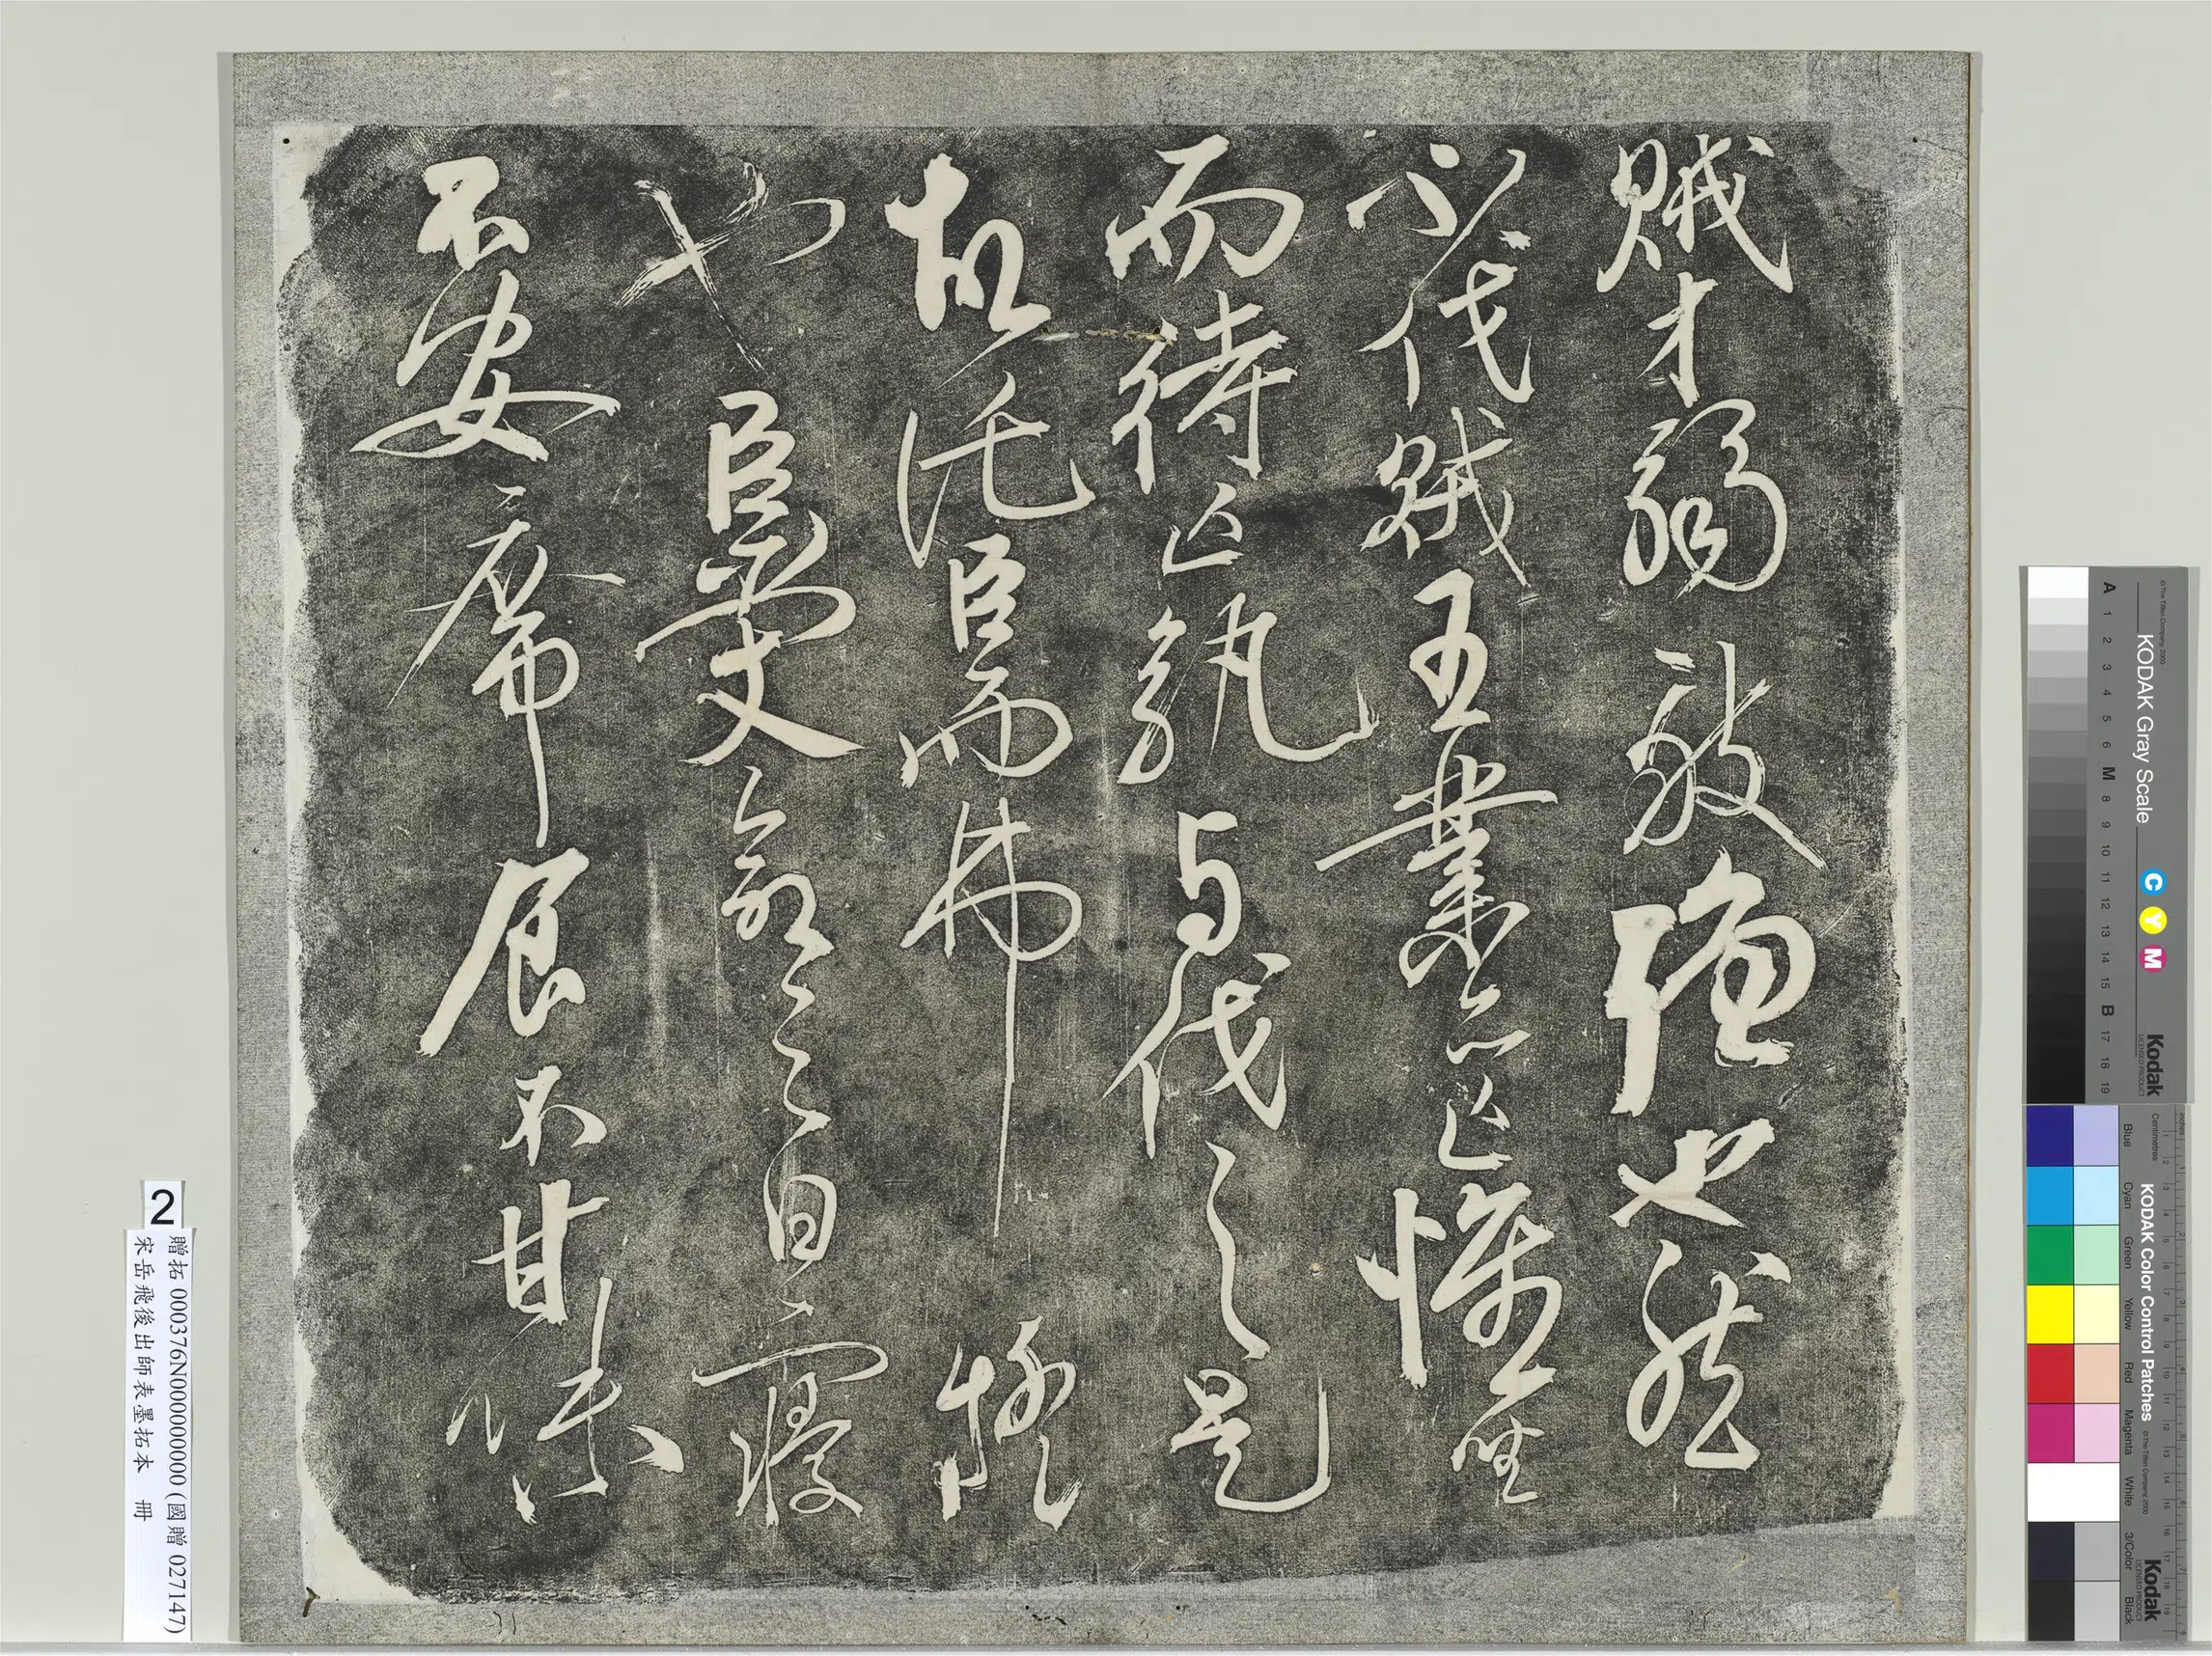 賊才弱敵強也然
不伐賊王業亦亡惟坐
而待亡孰与伐之是
故託臣而弗疑
也臣受命之日寢
不安席食不甘味
2
贈拓 000376N000000000 (國贈 027147)
宋岳飛後出師表墨拓本 冊
KODAK Gray Scale
Kodak
LICENSED PRODUCT
© The Tiffen Company, 2000
C Y M
A 1 2 3 4 5 6 M 8 9 10 11 12 13 14 15 B 17 18 19
KODAK Color Control Patches
Kodak
LICENSED PRODUCT
© The Tiffen Company, 2000
Inches
Centimetres
Blue Cyan Green Yellow Red Magenta White 3/Color Black